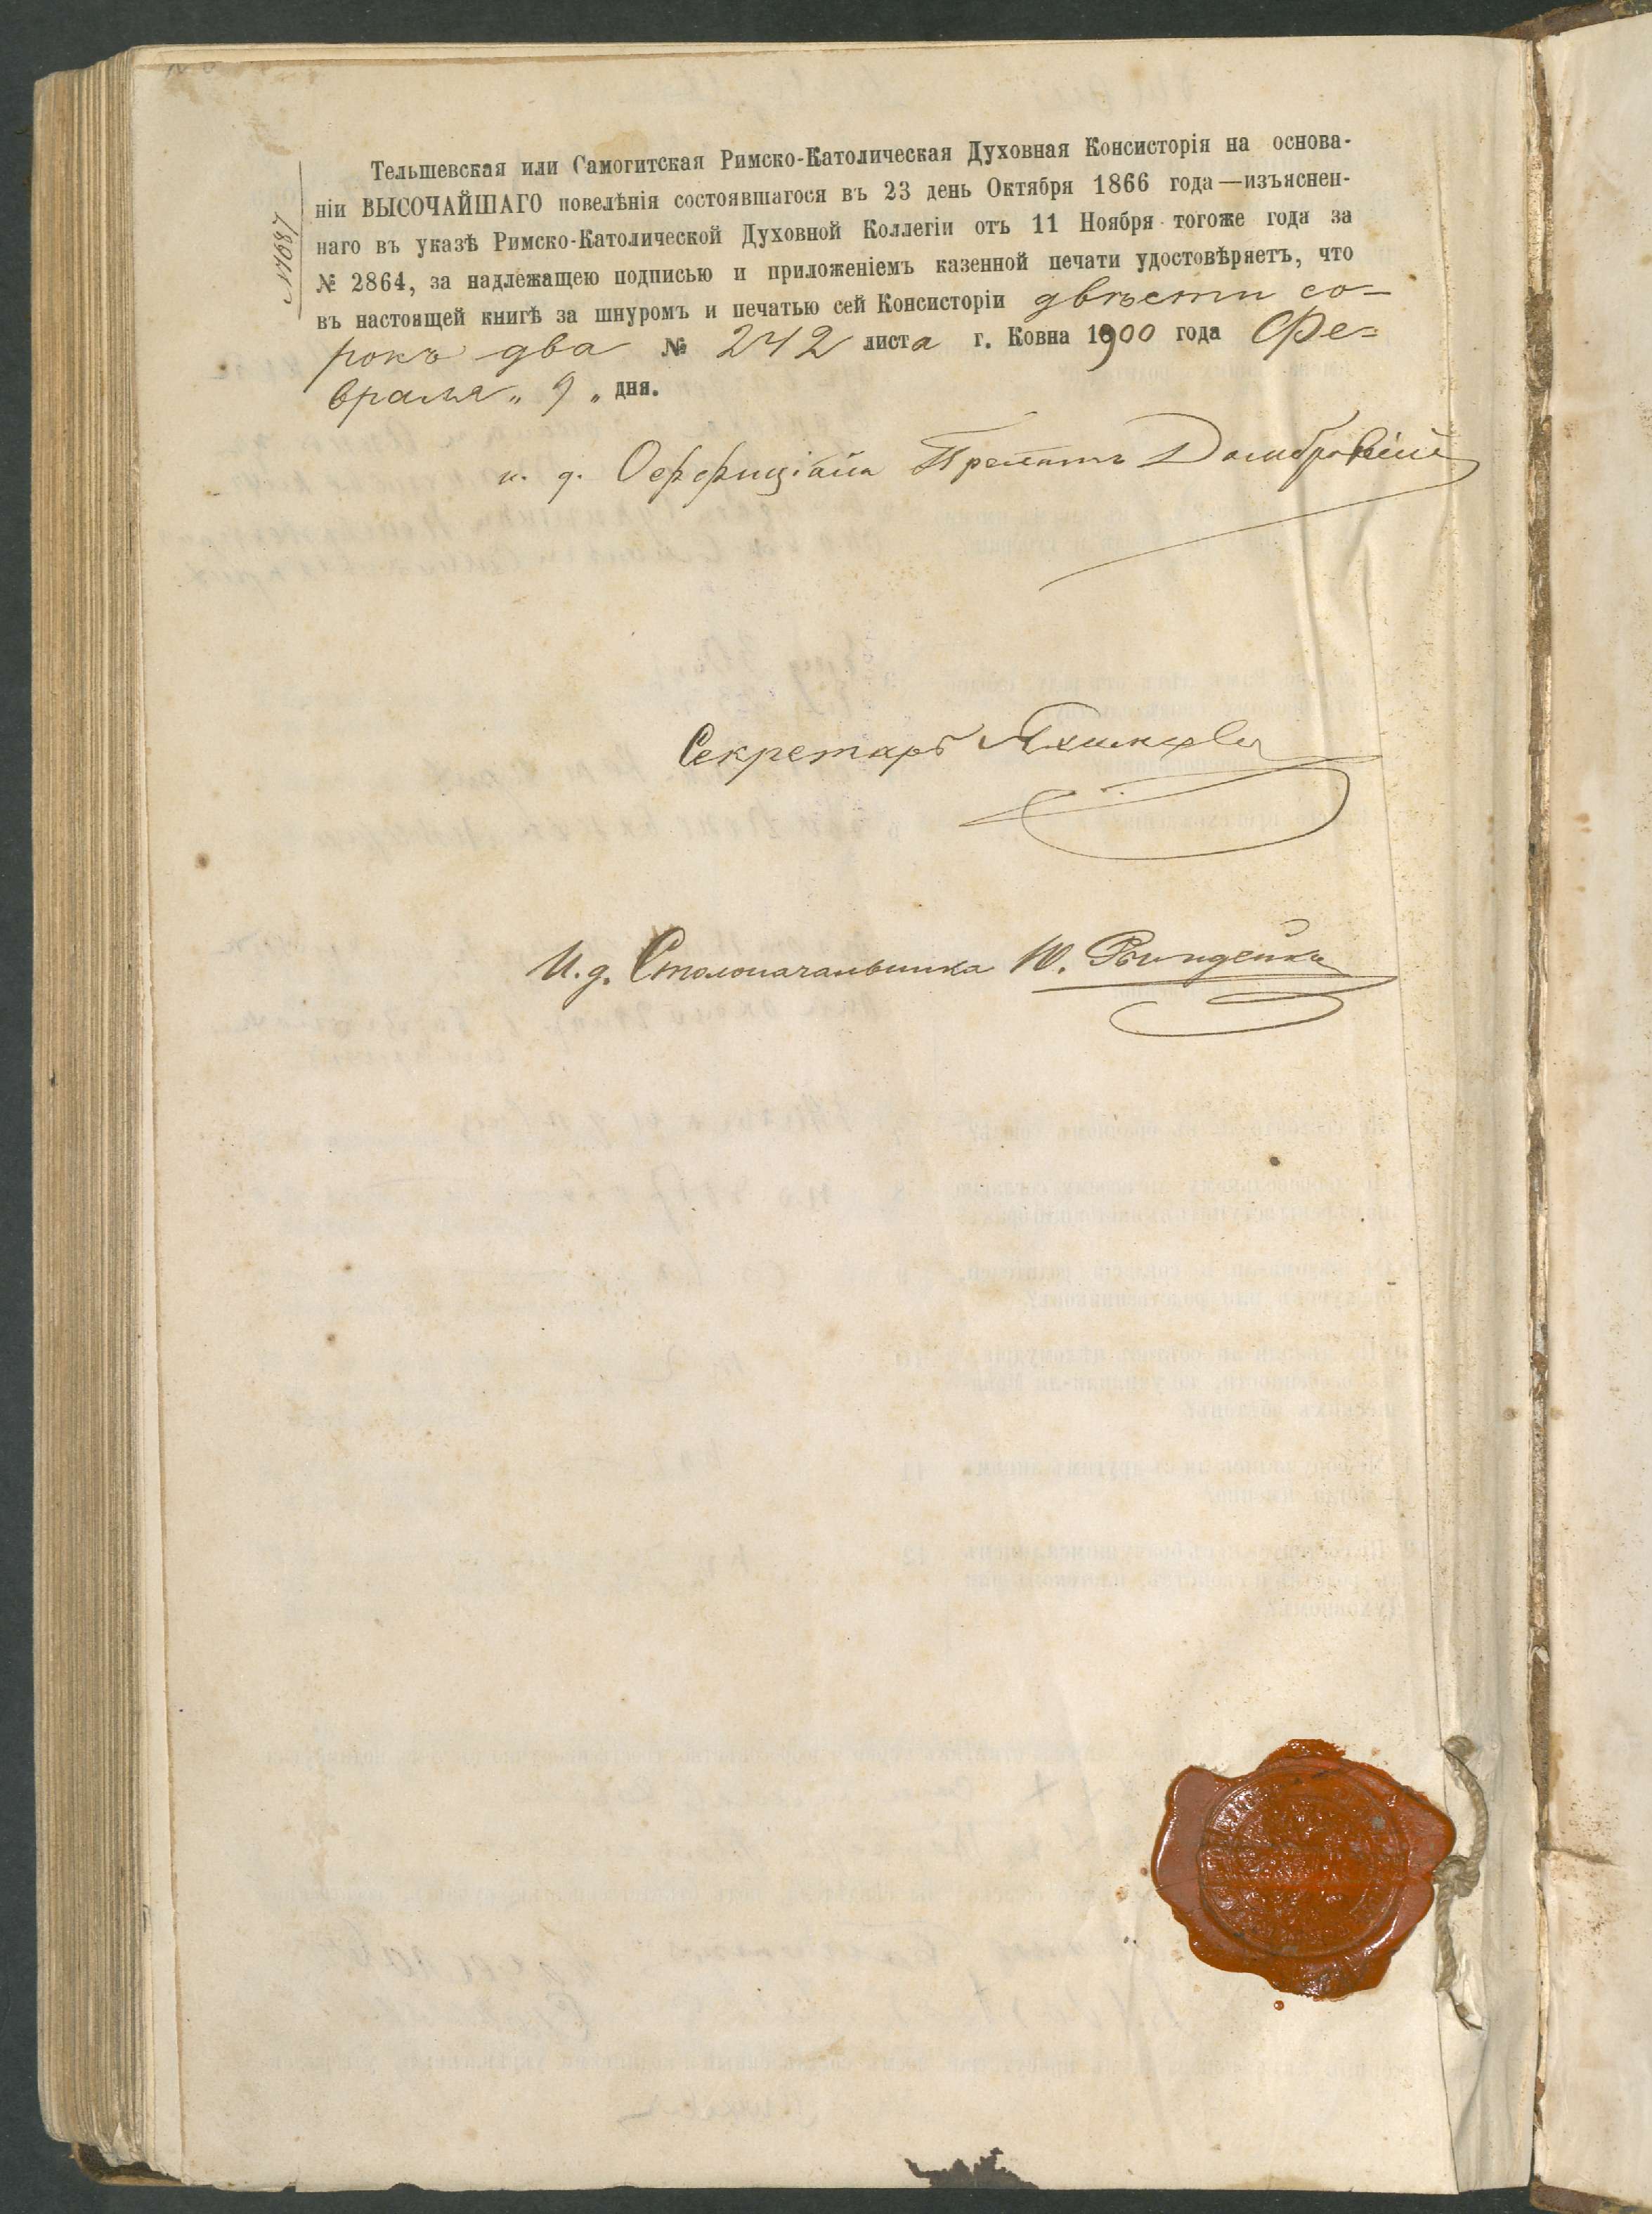 № 687
Тельшевская или Самогитская Римско-Католическая Духовная Консисторія на основа-
ніи ВЫСОЧАЙШАГО повелѣнія состоявшагося въ 23 день Октября 1866 года—изъяснен-
наго въ указѣ Римско-Католической Духовной Коллегіи отъ 11 Ноября тогоже года за
№ 2864, за надлежащею подписью и приложеніемъ казенной печати удостовѣряетъ, что
въ настоящей книгѣ за шнуромъ и печатью сей Консисторіи двѣсти со-
рокъ два № 242 листа г. Ковна 1900 года Фе=
враля „ 9 „ дня.
и. д. Оффиціала Прелатъ Домбровскій
Секретарь
И.д. Столоначальника Ю.